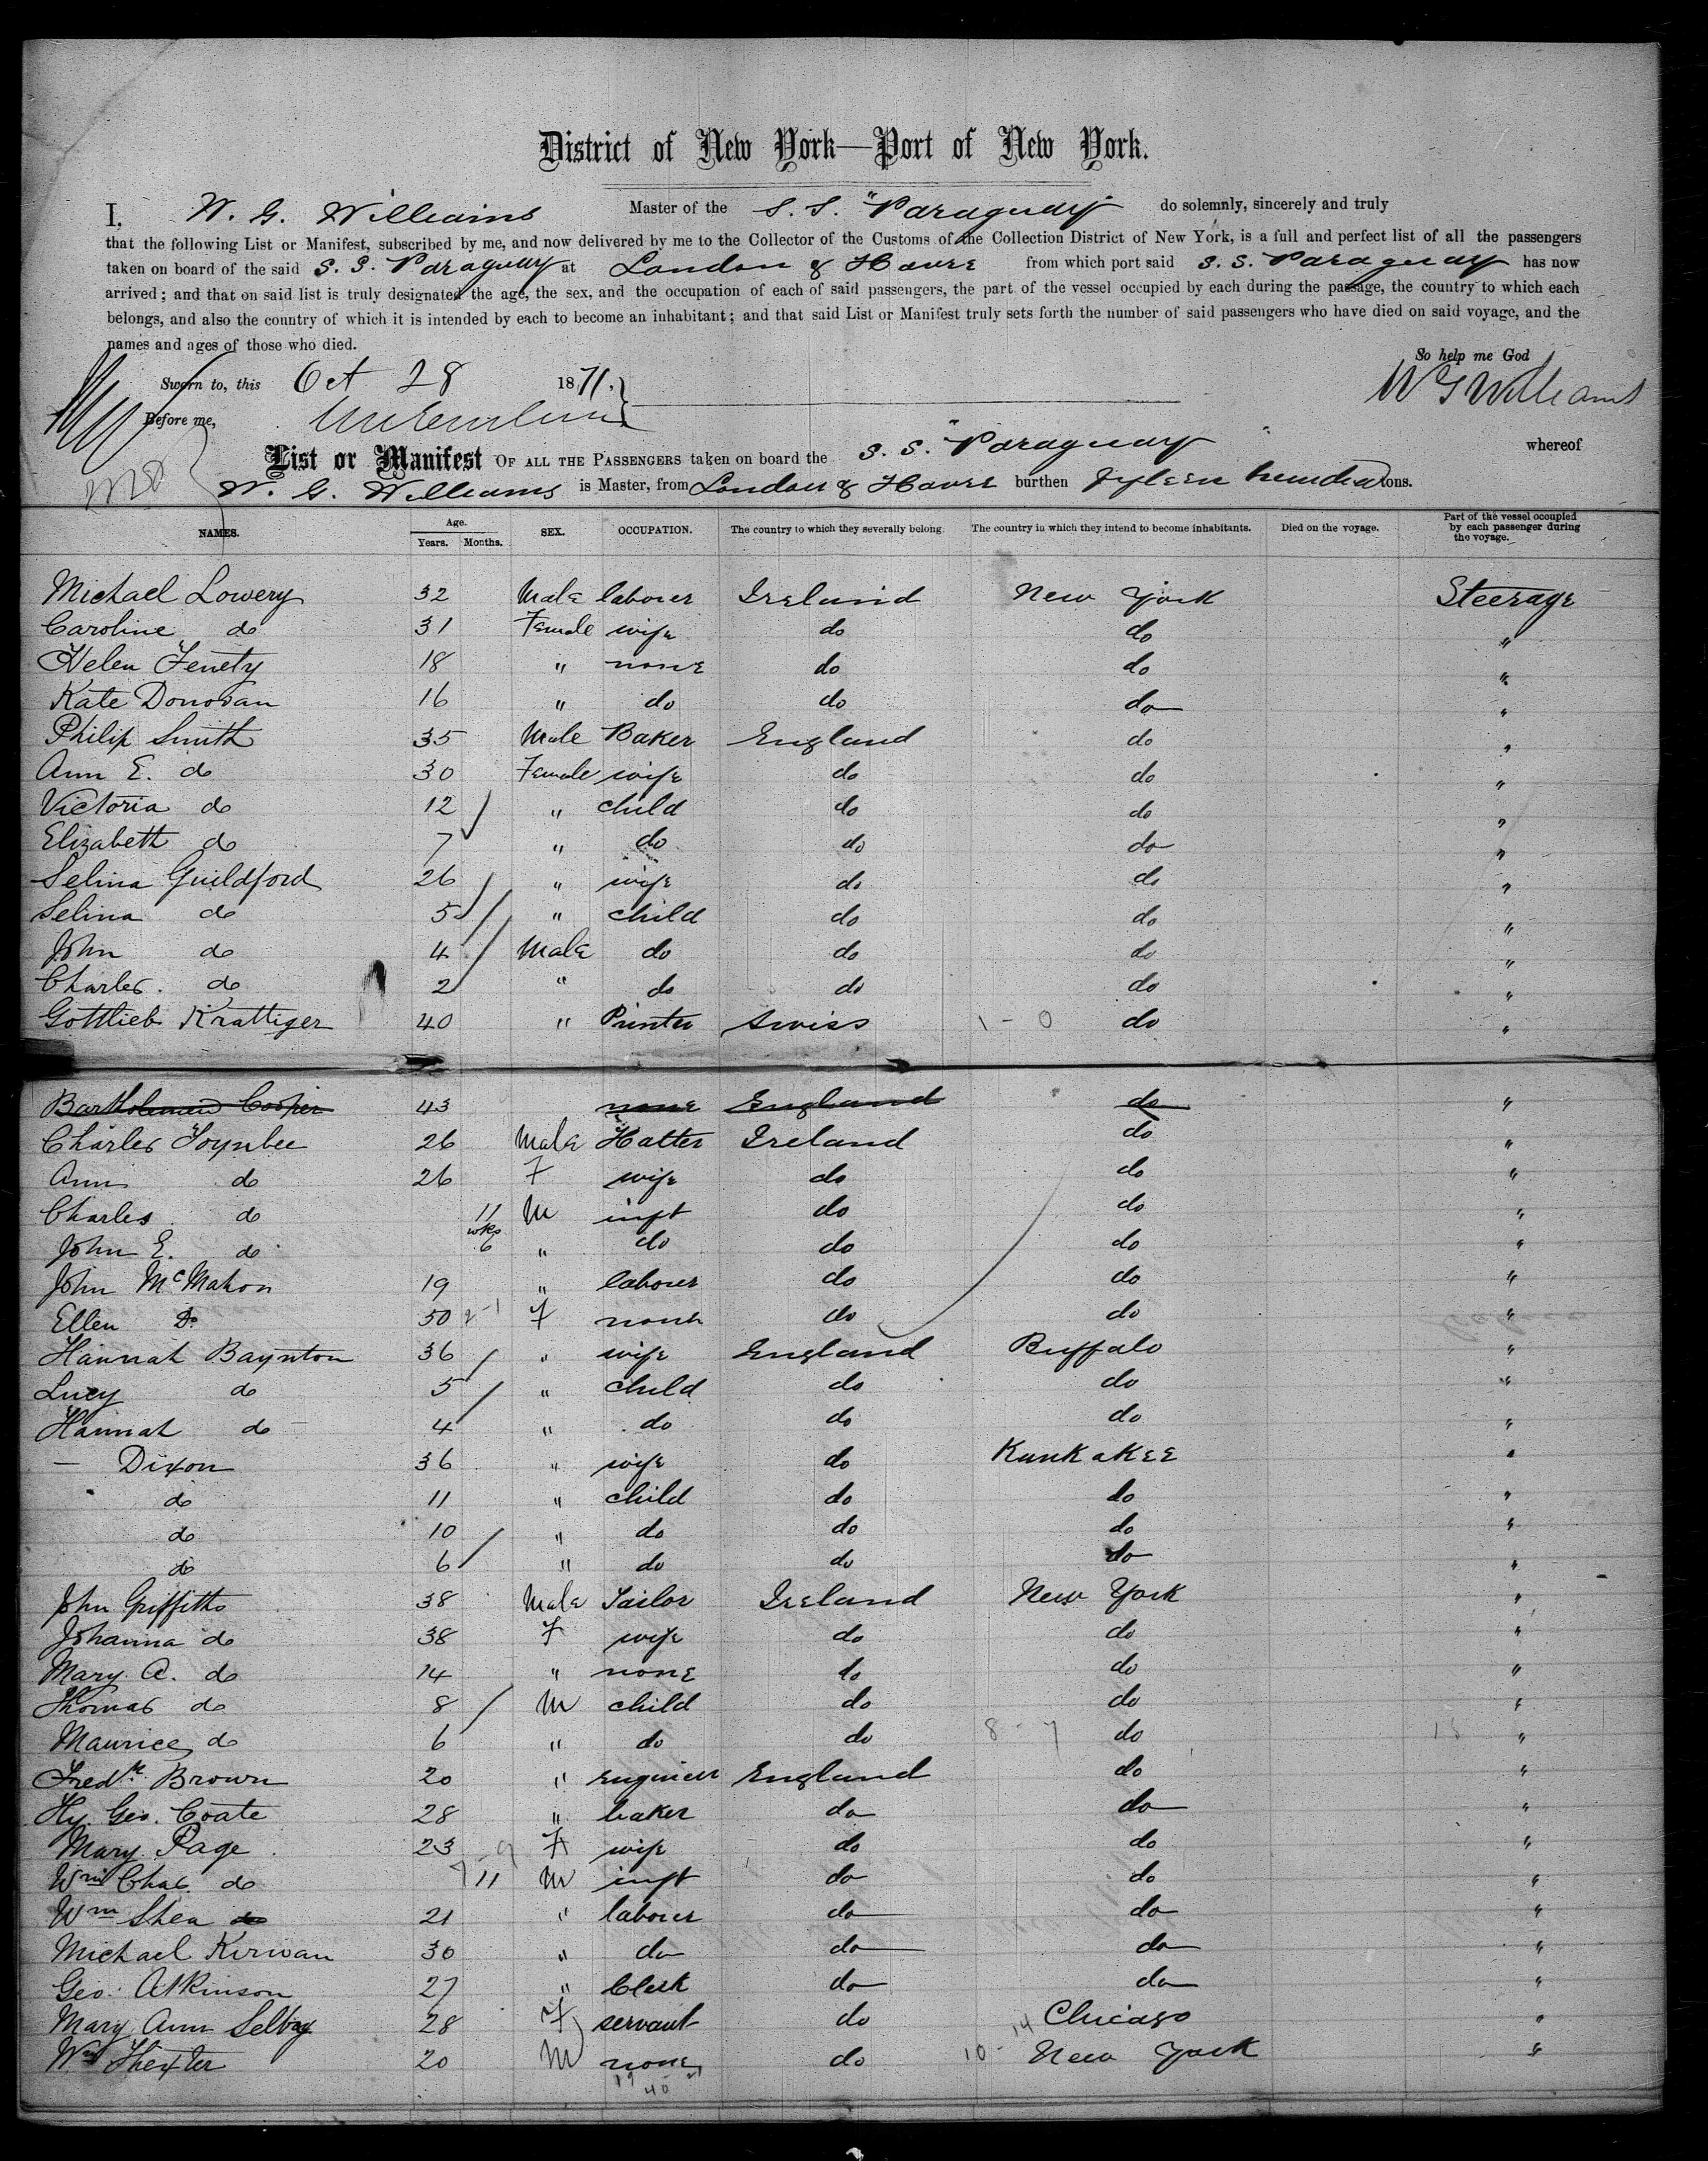 District of New York—Port of New York.
I, W. G. Williams Master of the S. S. "Paraguay" do solemnly, sincerely and truly
that the following List or Manifest, subscribed by me, and now delivered by me to the Collector of the Customs of the Collection District of New York, is a full and perfect list of all the passengers
taken on board of the said S. S. Paraguay at London & Havre from which port said S. S. Paraguay has now
arrived; and that on said list is truly designated the age, the sex, and the occupation of each of said passengers, the part of the vessel occupied by each during the passage, the country to which each
belongs, and also the country of which it is intended by each to become an inhabitant; and that said List or Manifest truly sets forth the number of said passengers who have died on said voyage, and the
names and ages of those who died.
So help me God
Sworn to, this Oct 28 1871. W G Williams
Before me,
List or Manifest OF ALL THE PASSENGERS taken on board the S. S. "Paraguay" whereof
W. G. Williams is Master, from London & Havre burthen fifteen hundred tons.
NAMES. Age. Years. Months. SEX. OCCUPATION. The country to which they severally belong. The country in which they intend to become inhabitants. Died on the voyage. Part of the vessel occupied by each passenger during the voyage.
Michael Lowery 32 Male laborer Ireland New York Steerage
Caroline do 31 Female wife do do "
Helen Fenety 18 " none do do "
Kate Donovan 16 " do do do "
Philip Smith 35 Male Baker England do "
Ann E. do 30 Female wife do do "
Victoria do 12 " child do do "
Elizabeth do 7 " do do do "
Selina Guildford 26 " wife do do "
Selina do 5 " child do do "
John do 4 Male do do do "
Charles do 2 " do do do "
Gottlieb Krattiger 40 " Printer Swiss 1 - 0 do "
Bartholomew Cooper 43 none England do "
Charles Toynbee 26 Male Hatter Ireland do "
Ann do 26 F wife do do "
Charles do 11 M inft do do "
John E. do wks 6 " do do do "
John McMahon 19 " laborer do do "
Ellen Do 50 F none do do "
Hannah Baynton 36 " wife England Buffalo "
Lucy do 5 " child do do "
Hannah do 4 " do do do "
— Dixon 36 " wife do Kankakee "
do 11 " child do do "
do 10 " do do do "
do 6 " do do do "
John Griffiths 38 Male Tailor Ireland New York "
Johanna do 38 F wife do do "
Mary A. do 14 " none do do "
Thomas do 8 M child do do "
Maurice do 6 " do do 8 - 7 do "
Fredk Brown 20 " engineer England do "
Hy. Geo. Coate 28 " baker do do "
Mary Page 23 F wife do do "
Wm Chas. do 11 M inft do do "
Wm Shea do 21 " laborer do do "
Michael Kirwan 30 " do do do "
Geo. Atkinson 27 " Clerk do do "
Mary Ann Selby 28 F servant do 14 Chicago "
Wm Thexter 20 M none do 10 - New York "
19 21
40